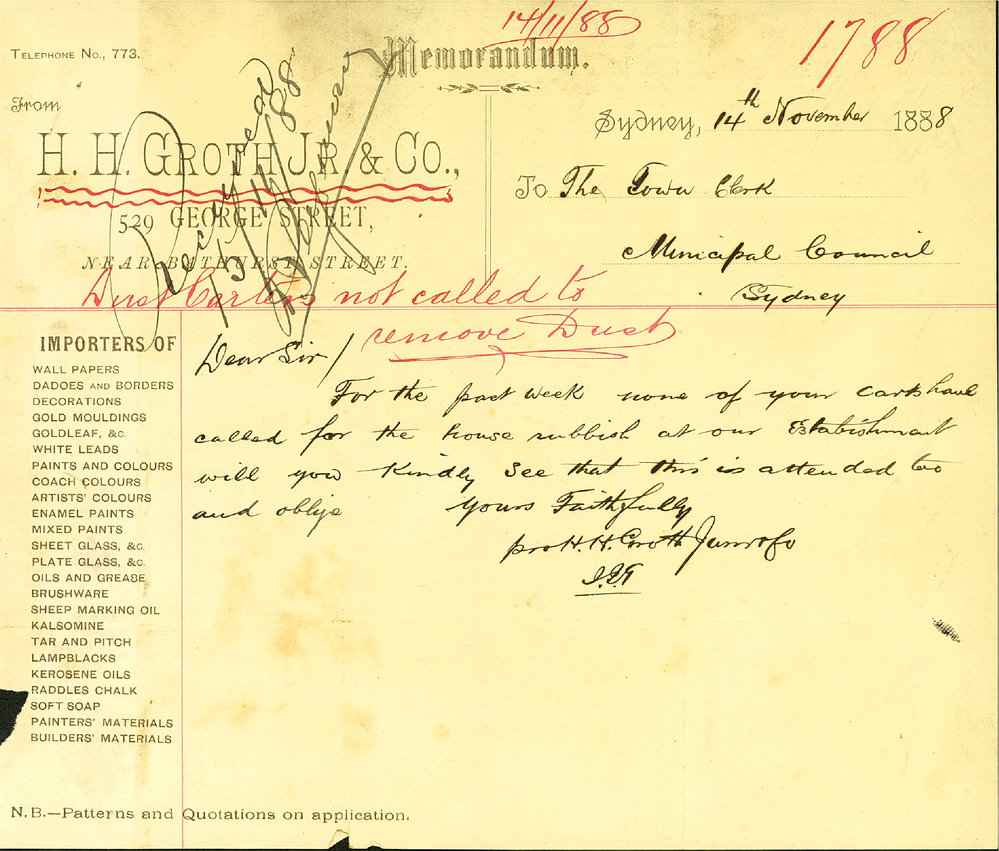 14/11/88
1788
TELEPHONE No., 773.
Memorandum.
From
H. H. GROTH JR. & CO.,
529 GEORGE STREET,
NEAR BATHURST STREET.
Sydney, 14th November 1888
To The Town Clerk
Municipal Council
Sydney
15/11/88
Dust Carters not called to
remove Dust
Dear Sir/
For the past week none of your carts have
called for the house rubbish at our Estabishment
will you Kindly See that this is attended too
and oblige
Yours Faithfully
pro H. H. Groth Junr & Co
IMPORTERS OF
WALL PAPERS
DADOES AND BORDERS
DECORATIONS
GOLD MOULDINGS
GOLDLEAF, &c.
WHITE LEADS
PAINTS AND COLOURS
COACH COLOURS
ARTISTS' COLOURS
ENAMEL PAINTS
MIXED PAINTS
SHEET GLASS, &c.
PLATE GLASS, &c.
OILS AND GREASE
BRUSHWARE
SHEEP MARKING OIL
KALSOMINE
TAR AND PITCH
LAMPBLACKS
KEROSENE OILS
RADDLES CHALK
SOFT SOAP
PAINTERS' MATERIALS
BUILDERS' MATERIALS
N.B.—Patterns and Quotations on application.